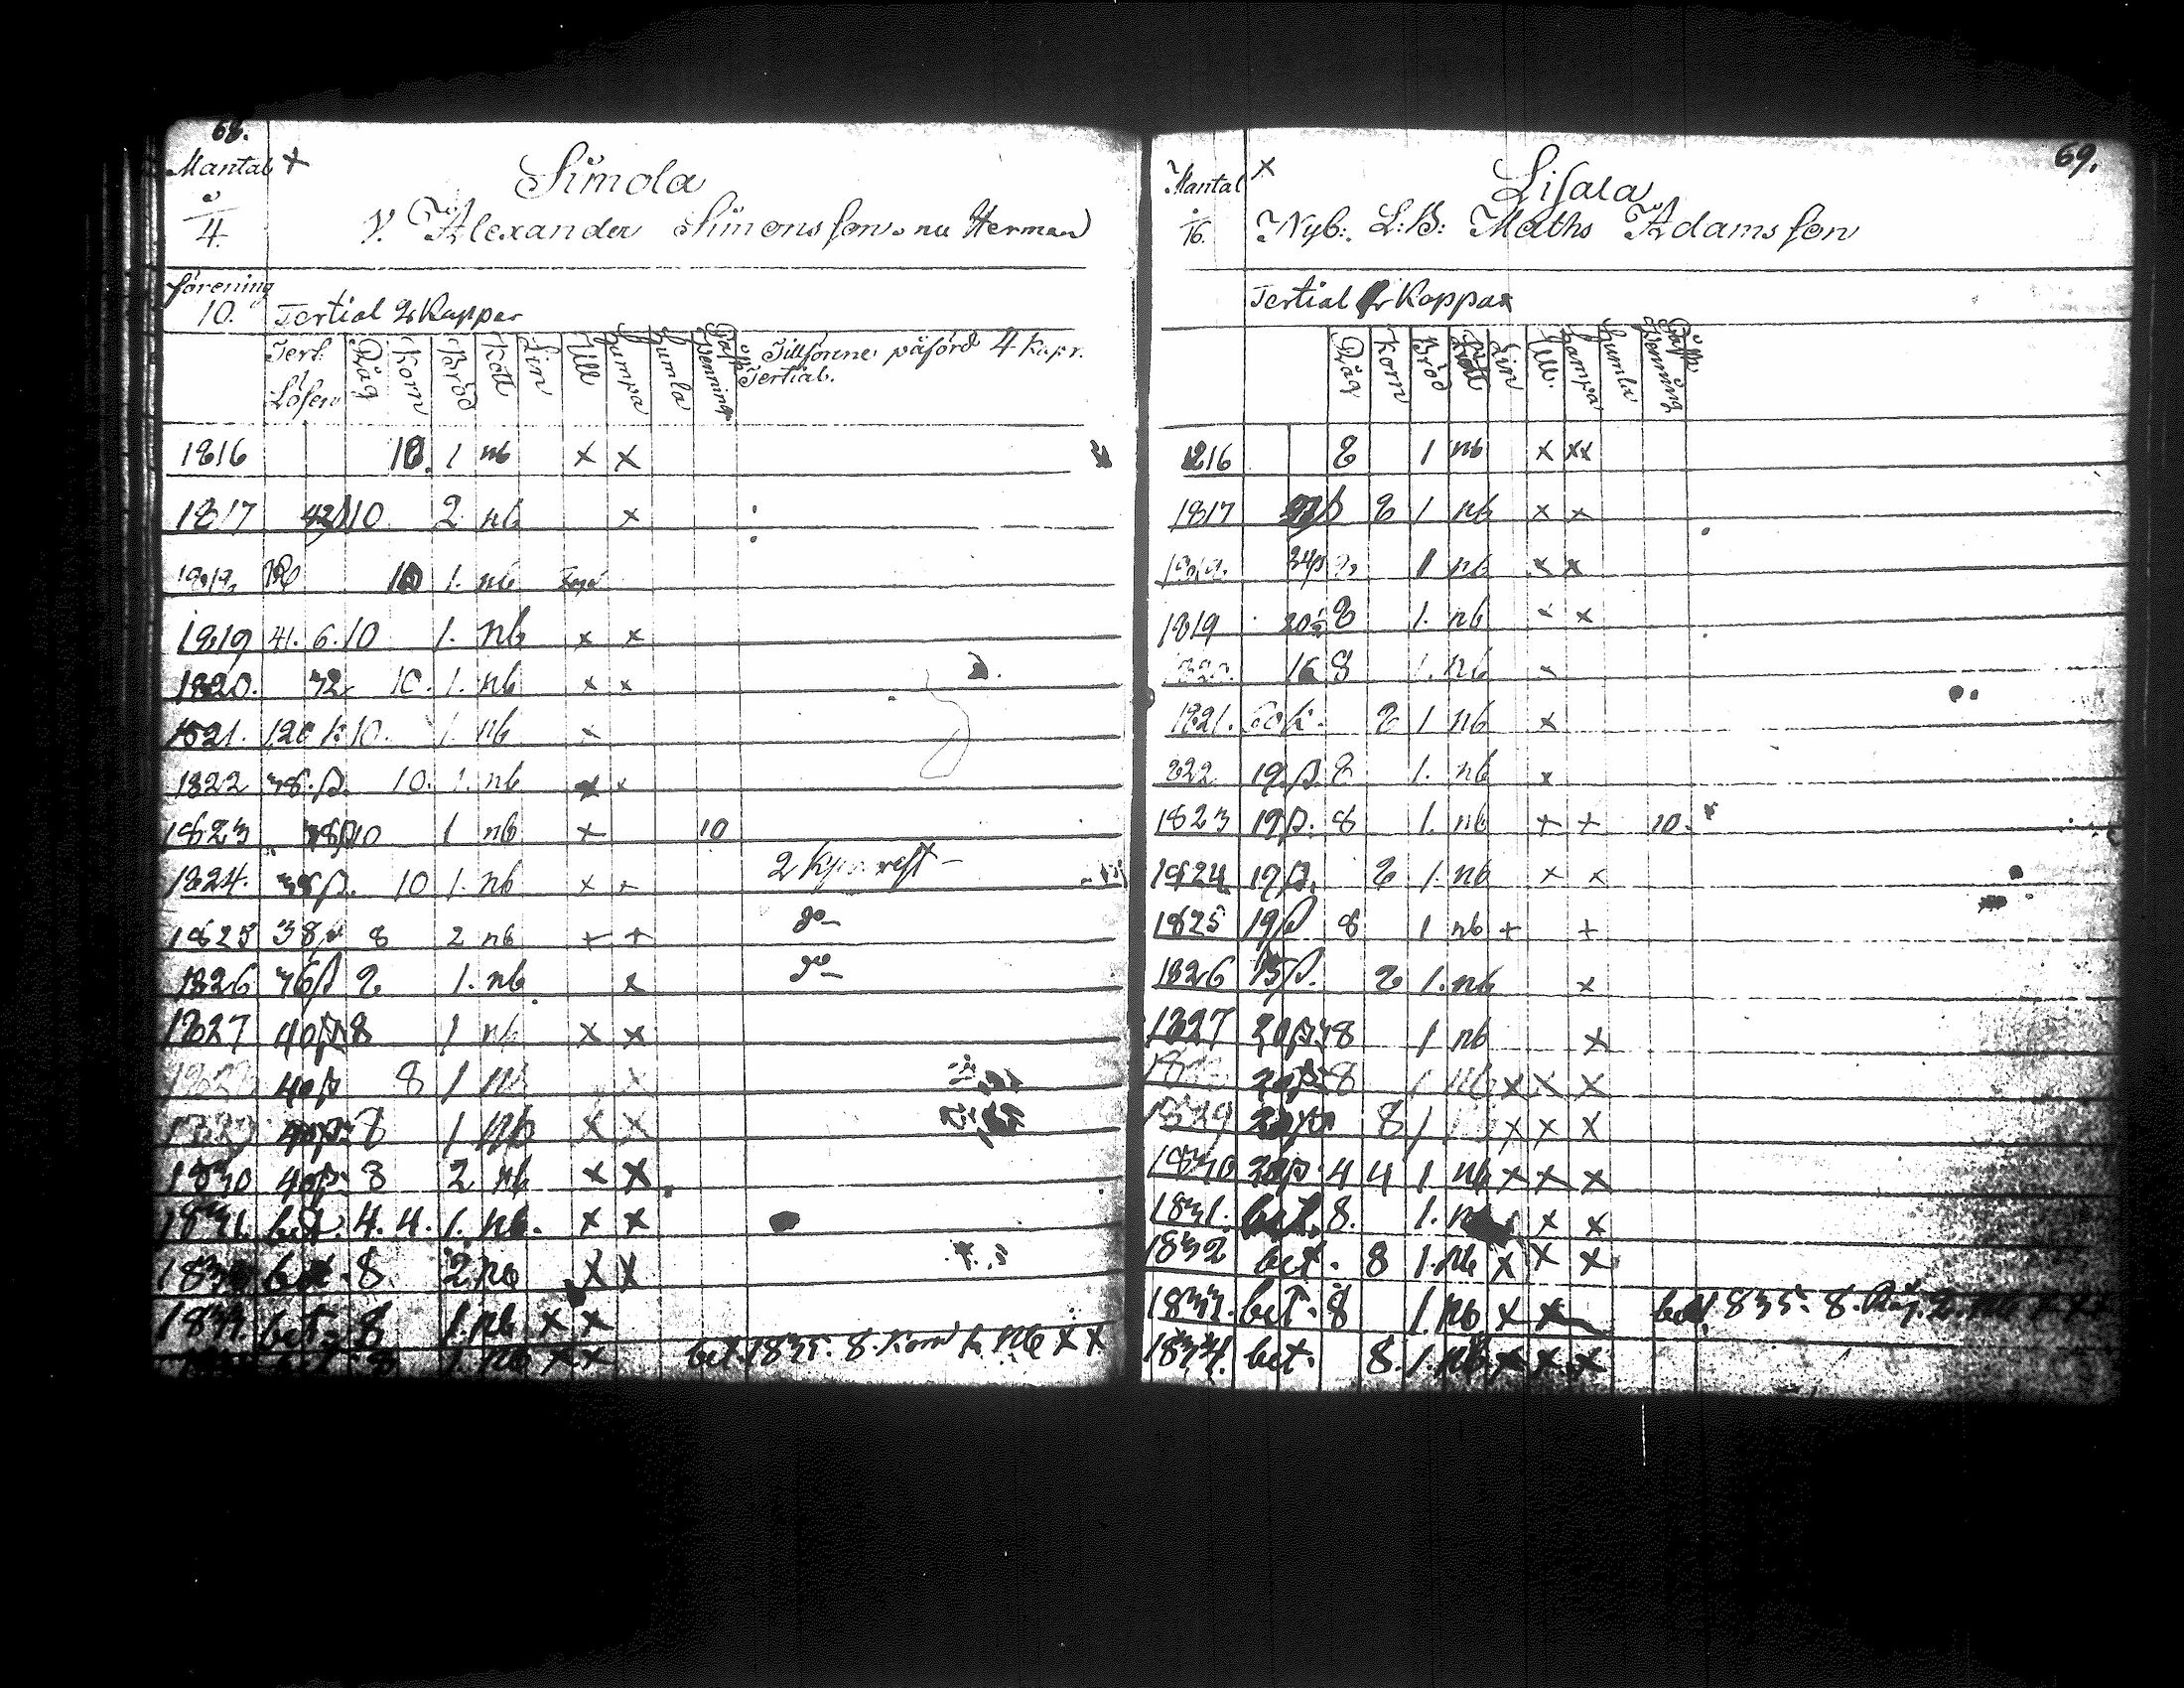 68.
Mantal +
4.
Simola
V. Alexander Simonsson nu Herman
förening
10. Tertial 2 Kappar
Tert: Lösen Råg Korn Bröd Kött Lin Ull Hampa Humla Påsk Penning Tillförne påförd 4 Kapr. Tertial.
1816 10. 1 nb x x
1817 42 10 2 nb x
10 1. nb
1819 41. 6. 10 1. nb x x
1820. 10. 1. nb x x
1821. 120 k 10. 1. nb x
1822 38. β. 10. 1. nb x x
1823 38β 10 1 nb x 10
1824. 38β. 10 1. nb x x 2 kpr rest
1825 38β 8 2 nb + + do
1826 36β 8 1. nb x do
1827 40β 8 1 nb x x
40β 8 1 nb x
40β 8 1 nb x x
1830 40β 8 2 nb x x
1831. bet. 4. 4. 1. nb. x x
bet. 8 2 nb x x
1833. bet. 8 1. nb x x
8 1. nb x x bet. 1835. 8. Korn nb x x
69.
Mantal x
16.
Lisala
Nyb: L:B: Maths Adamsson
Tertial Kappar
Råg Korn Bröd Kött Lin Ull Hampa Humla Påsk Penning
1816 8 1 nb x xx
1817 8 1 nb x x
34β 8 1 nb x x
1819 20½ 8 1. nb x x
16 8 1. nb x
1821. 60 k. 8 1 nb x
1822 19β 8 1. nb x
1823 19β. 8 1. nb + + 10.
1824 19β. 8 1. nb x x
1825 19β 8 1 nb + +
1826 β. 8 1. nb x
1827 20β. 8 1 nb x
20β 8 1 nb x x x
1829 20β 8 1 x x x
1830 20β. 4 4 1. nb x x x
1831. bet. 8. 1. x x
1832 bet. 8 1. nb x x x
1833. bet. 8 1. nb x x bet. 1835. 8. Råg. 2. nb x x x
1834. bet. 8. 1. nb x x x